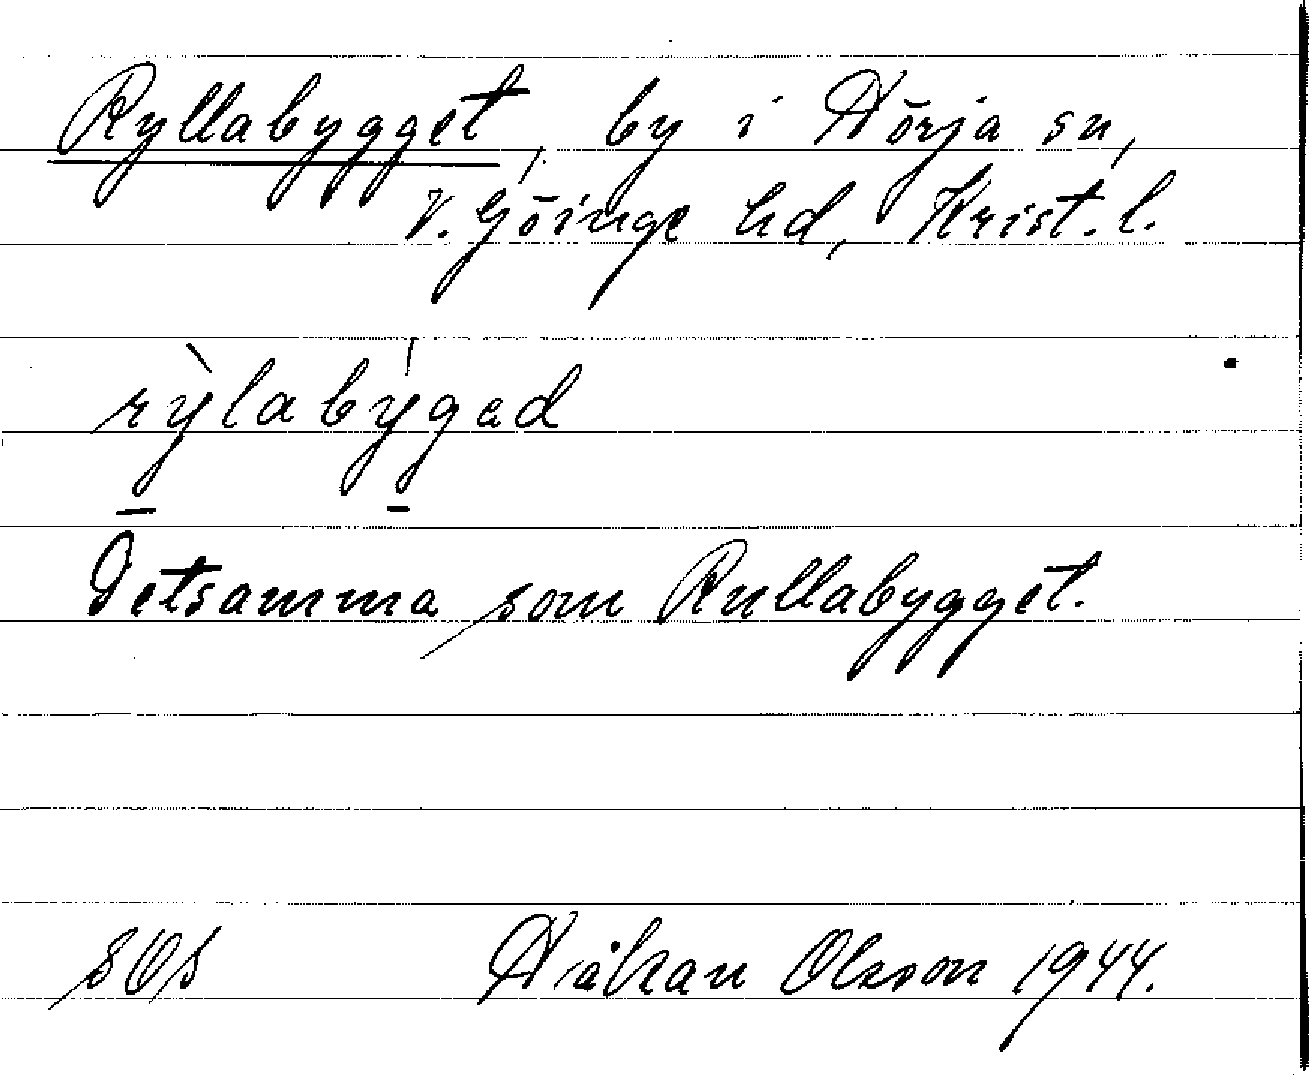 Ryllabygget, by i Hörja sn,
V. Göinge hd, Krist. l.
rỳlabýgad
Detsamma som Rullabygget.
Håkan Olsson 1944.